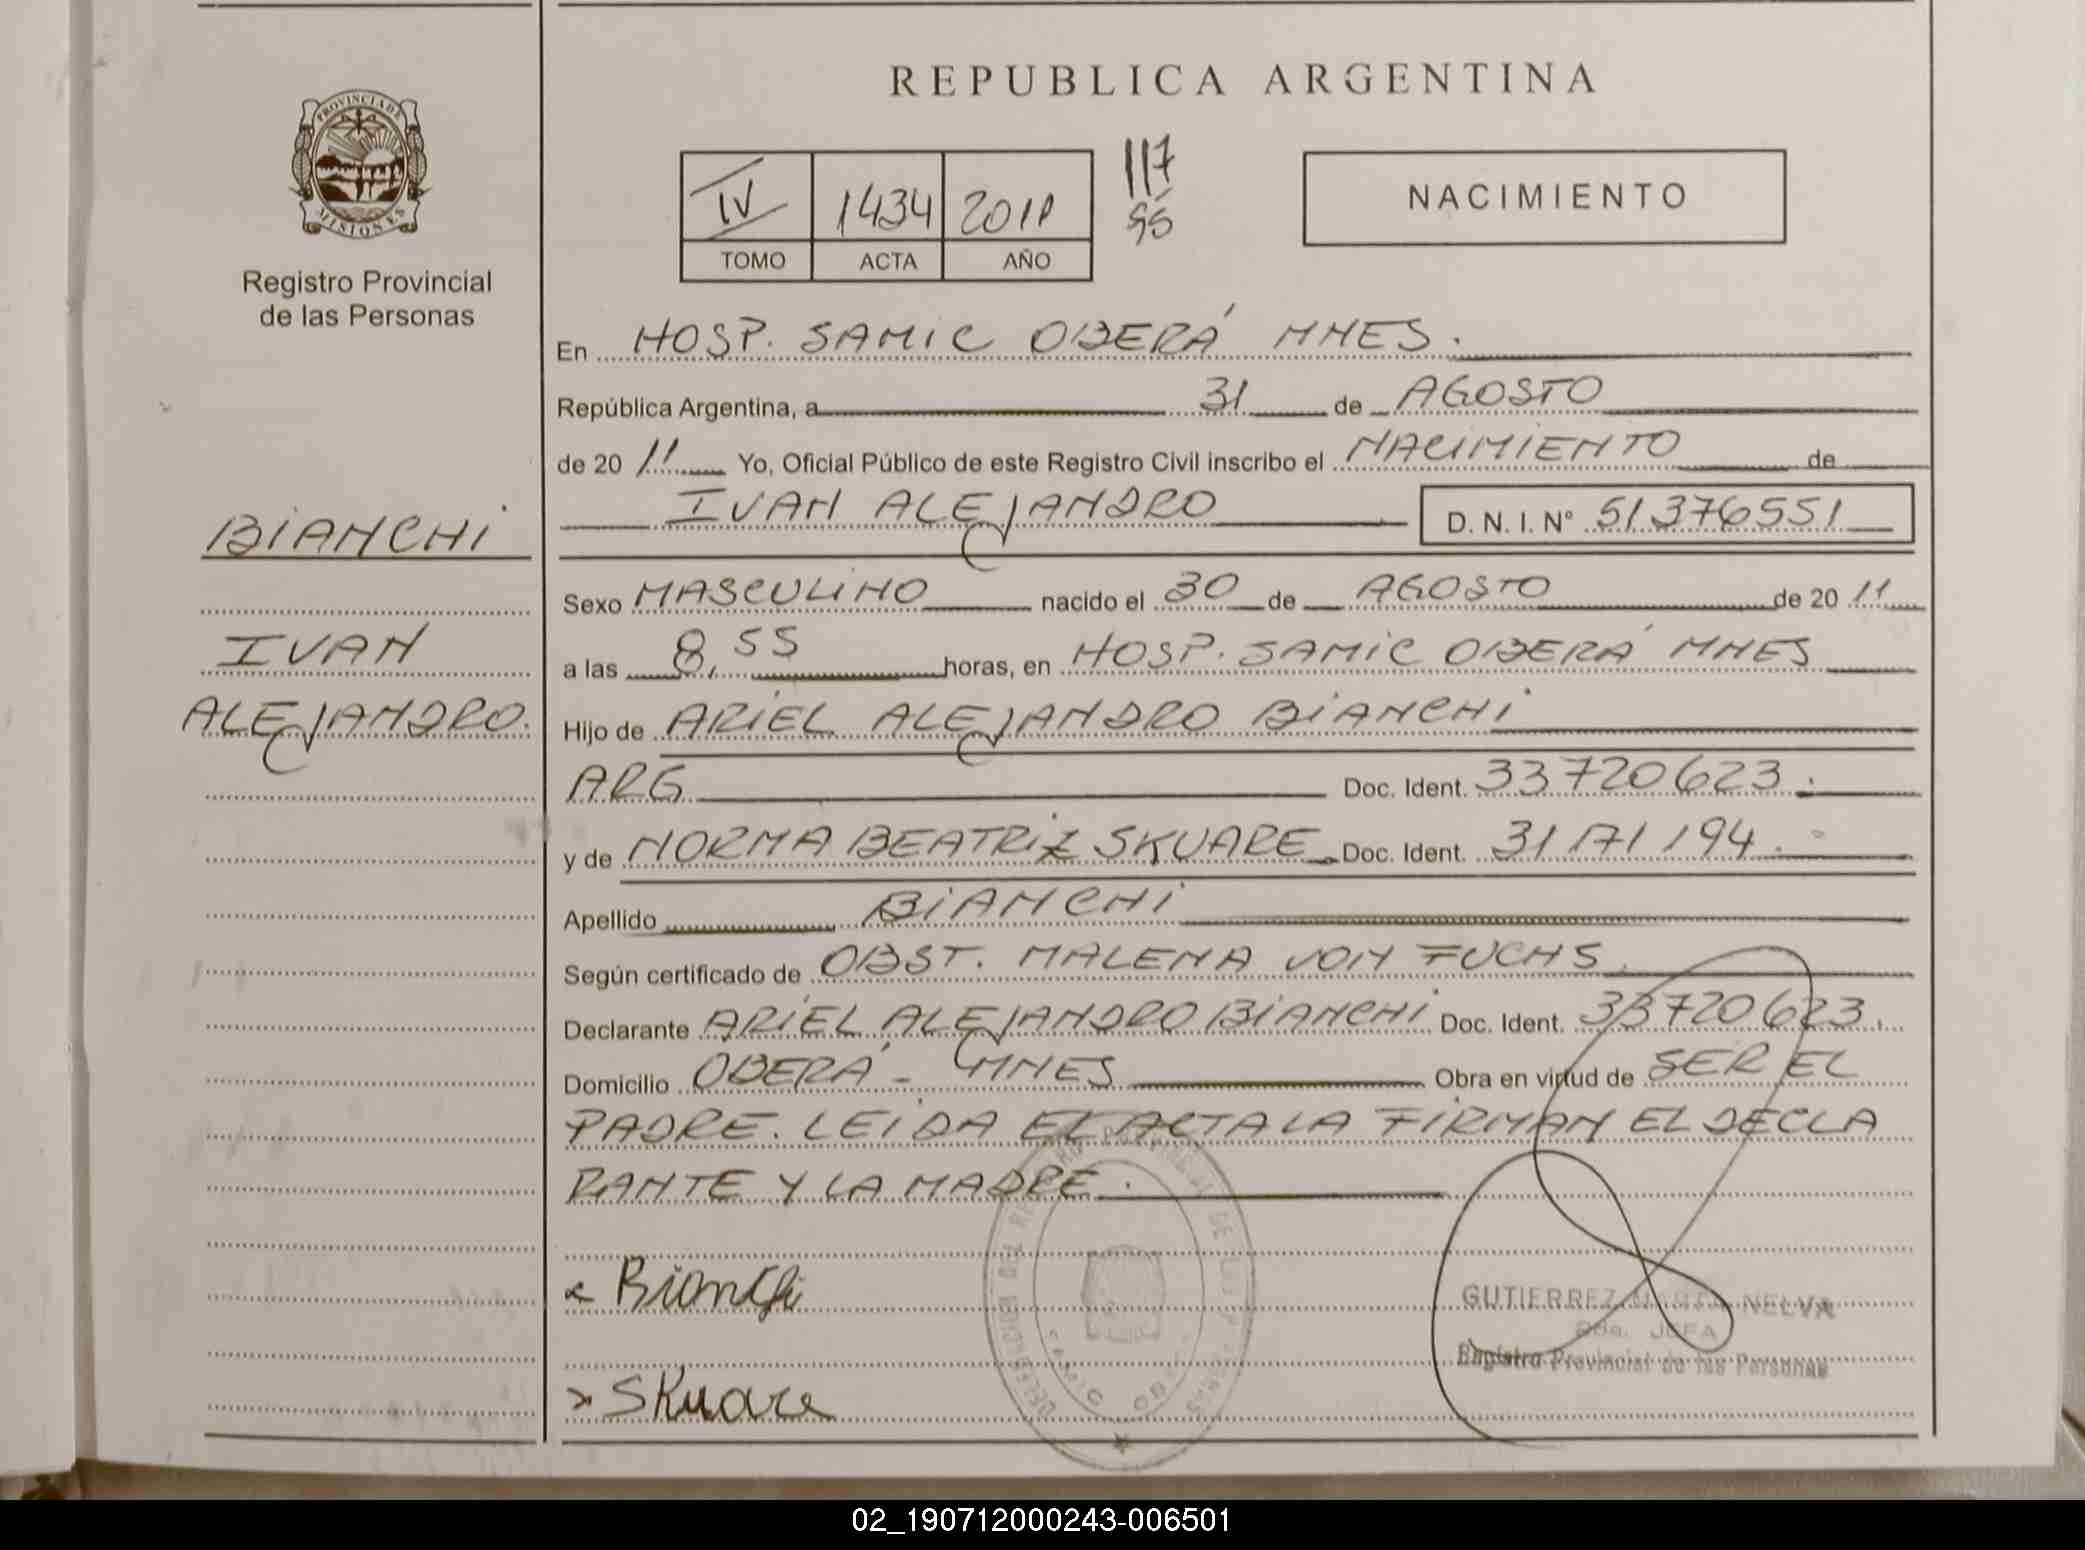 REPUBLICA ARGENTINA
PROVINCIA DE
MISIONES
Registro Provincial
de las Personas
IV 1434 2011
TOMO ACTA AÑO
117
55
NACIMIENTO
En HOSP. SAMIC OBERÁ MNES.
República Argentina, a 31 de AGOSTO
de 20 11 Yo, Oficial Público de este Registro Civil inscribo el NACIMIENTO de
IVAN ALEJANDRO D. N. I. N° 51376551
BIANCHI
IVAN
ALEJANDRO.
Sexo MASCULINO nacido el 30 de AGOSTO de 20 11
a las 8,55 horas, en HOSP. SAMIC OBERÁ MNES
Hijo de ARIEL ALEJANDRO BIANCHI
ARG Doc. Ident. 33720623.
y de NORMA BEATRIZ SKUARE Doc. Ident. 31171194.
Apellido BIANCHI
Según certificado de OBST. MALENA VON FUCHS.
Declarante ARIEL ALEJANDRO BIANCHI Doc. Ident. 33720623.
Domicilio OBERÁ - MNES Obra en virtud de SER EL
PADRE. LEIDA EL ACTA LA FIRMAN EL DECLA
RANTE Y LA MADRE.
Bianchi
Skuare
GUTIERREZ MARTA NELVA
2da. JEFA
Registro Provincial de las Personas
02_190712000243-006501